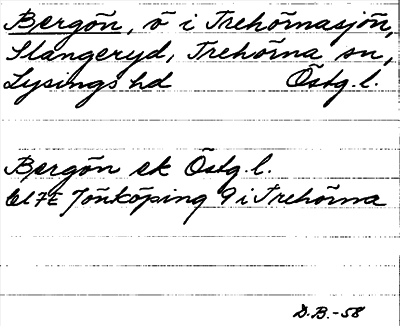 Bergön, ö i Trehörnasjön,
Slangeryd, Trehörna sn,
Lysings hd Östg. l.
Bergön ek Östg. l.
Jönköping 9 i Trehörna
D.B.-58